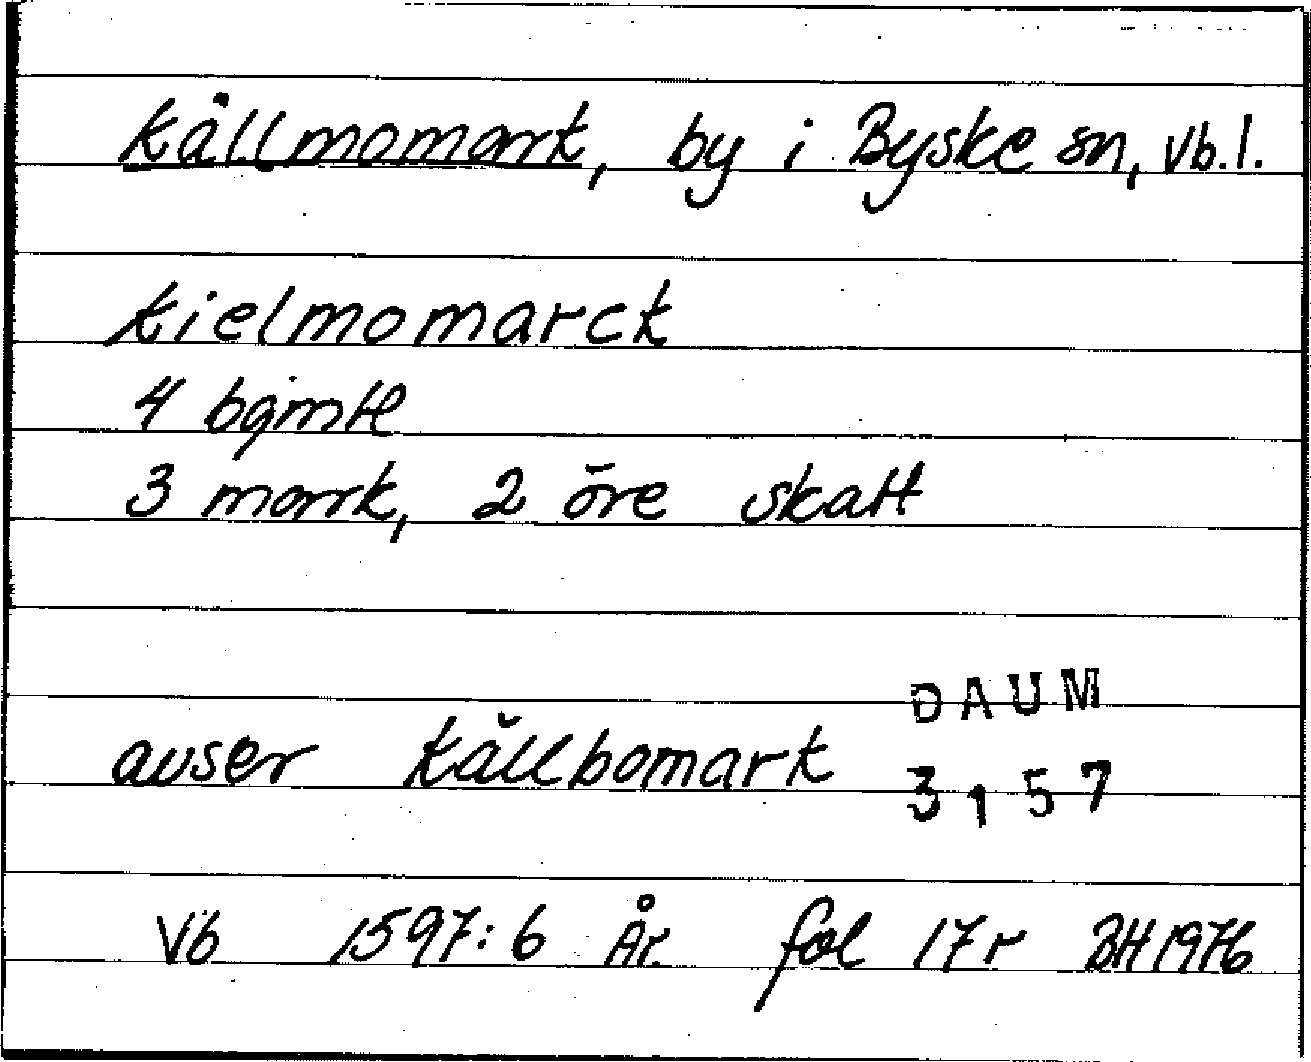 Källmomark, by i Byske sn, Vb.l.
Kielmomarck
4 bgmtl
3 mark, 2 öre skatt
DAUM
avser Källbomark
3157
Vb 1597:6 År. fol 17r BH 1976